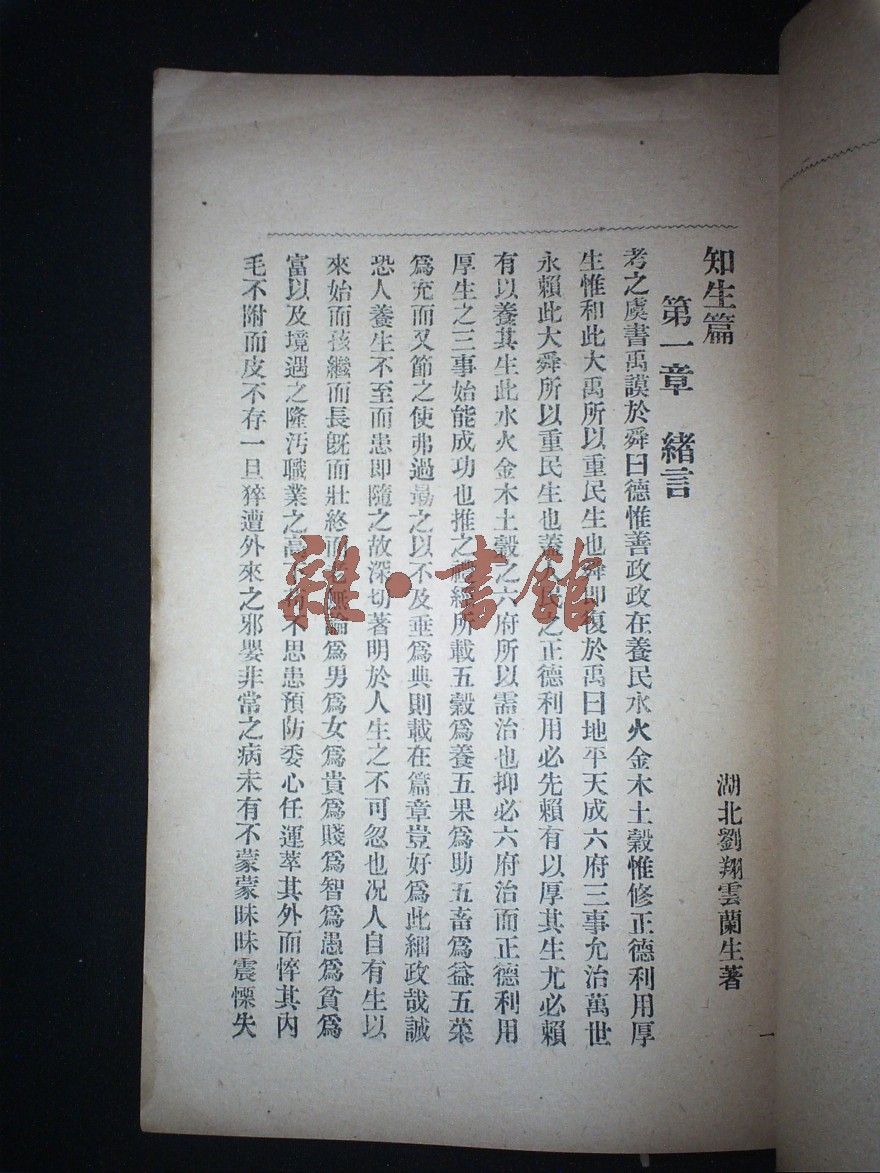 知生篇
湖北劉翔雲蘭生著
第一章 緒言
考之虞書禹謨於舜曰德惟善政政在養民水火金木土穀惟修正德利用厚
生惟和此大禹所以重民生也舜即復於禹曰地平天成六府三事允治萬世
永賴此大舜所以重民生也蓋人民之正德利用必先賴有以厚其生尤必賴
有以養其生此水火金木土穀之六府所以需治也抑必六府治而正德利用
厚生之三事始能成功也推之禮經所載五穀爲養五果爲助五畜爲益五菜
爲充而又節之使弗過勗之以不及垂爲典則載在篇章豈好爲此細政哉誠
恐人養生不至而患即隨之故深切著明於人生之不可忽也况人自有生以
來始而孩繼而長旣而壯終而無論爲男爲女爲貴爲賤爲智爲愚爲貧爲
富以及境遇之隆汚職業之高不思患預防委心任運萃其外而悴其內
毛不附而皮不存一旦猝遭外來之邪嬰非常之病未有不蒙蒙昧昧震慄失
一
雜·書館